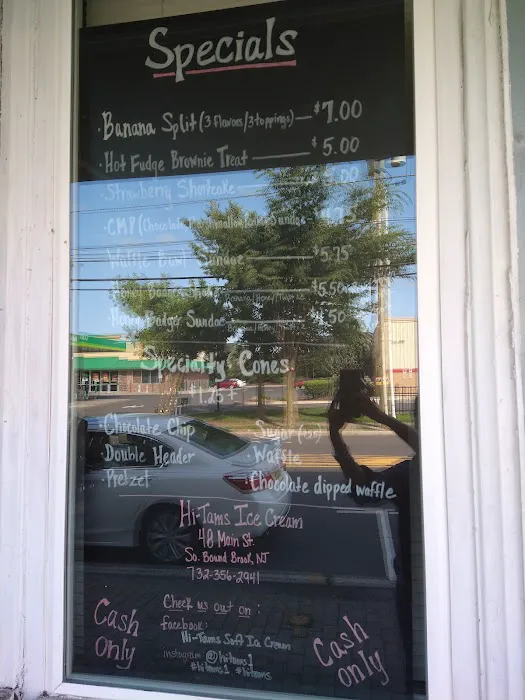 Specials
· Banana Split (3 flavors/3 toppings) — $7.00
· Hot Fudge Brownie Treat — $5.00
· Strawberry Shortcake
· CMP (Chocolate Marshmallow Sundae
Waffle Bowl Sundae $5.75
$5.50
Honey Badger Sundae
Specialty Cones
· Chocolate Chip
· Double Header
· Pretzel
· Sugar
· Waffle
· Chocolate dipped waffle
Hi-Tams Ice Cream
48 Main St.
So. Bound Brook, NJ
732-356-2941
Cash only
Check us out on :
facebook:
Hi-Tams Soft Ice Cream
instagram @hitams1
#hitams1 #hitams
Cash only